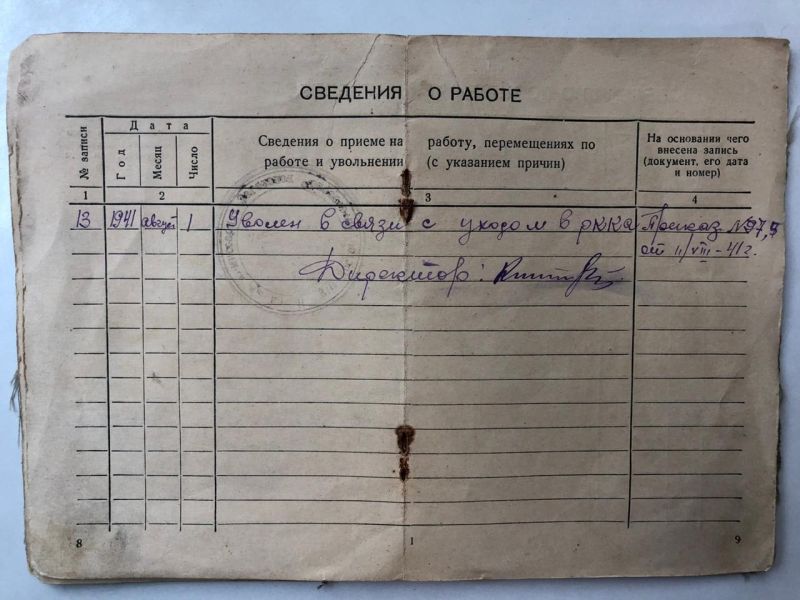 СВЕДЕНИЯ О РАБОТЕ
№ записи
Дата
Год
Месяц
Число
Сведения о приеме на работу, перемещениях по
работе и увольнении (с указанием причин)
На основании чего
внесена запись
(документ, его дата
и номер)
1 2 3 4
13 1941 август 1 Уволен в связи с уходом в РККА Приказ №97,
от 11/VIII-41г.
Директор:
8 1 9